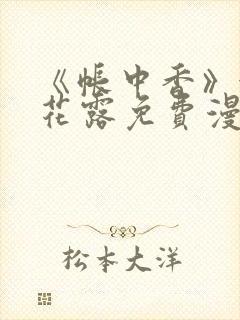 《帐中香》
花露免費漫
松本大洋